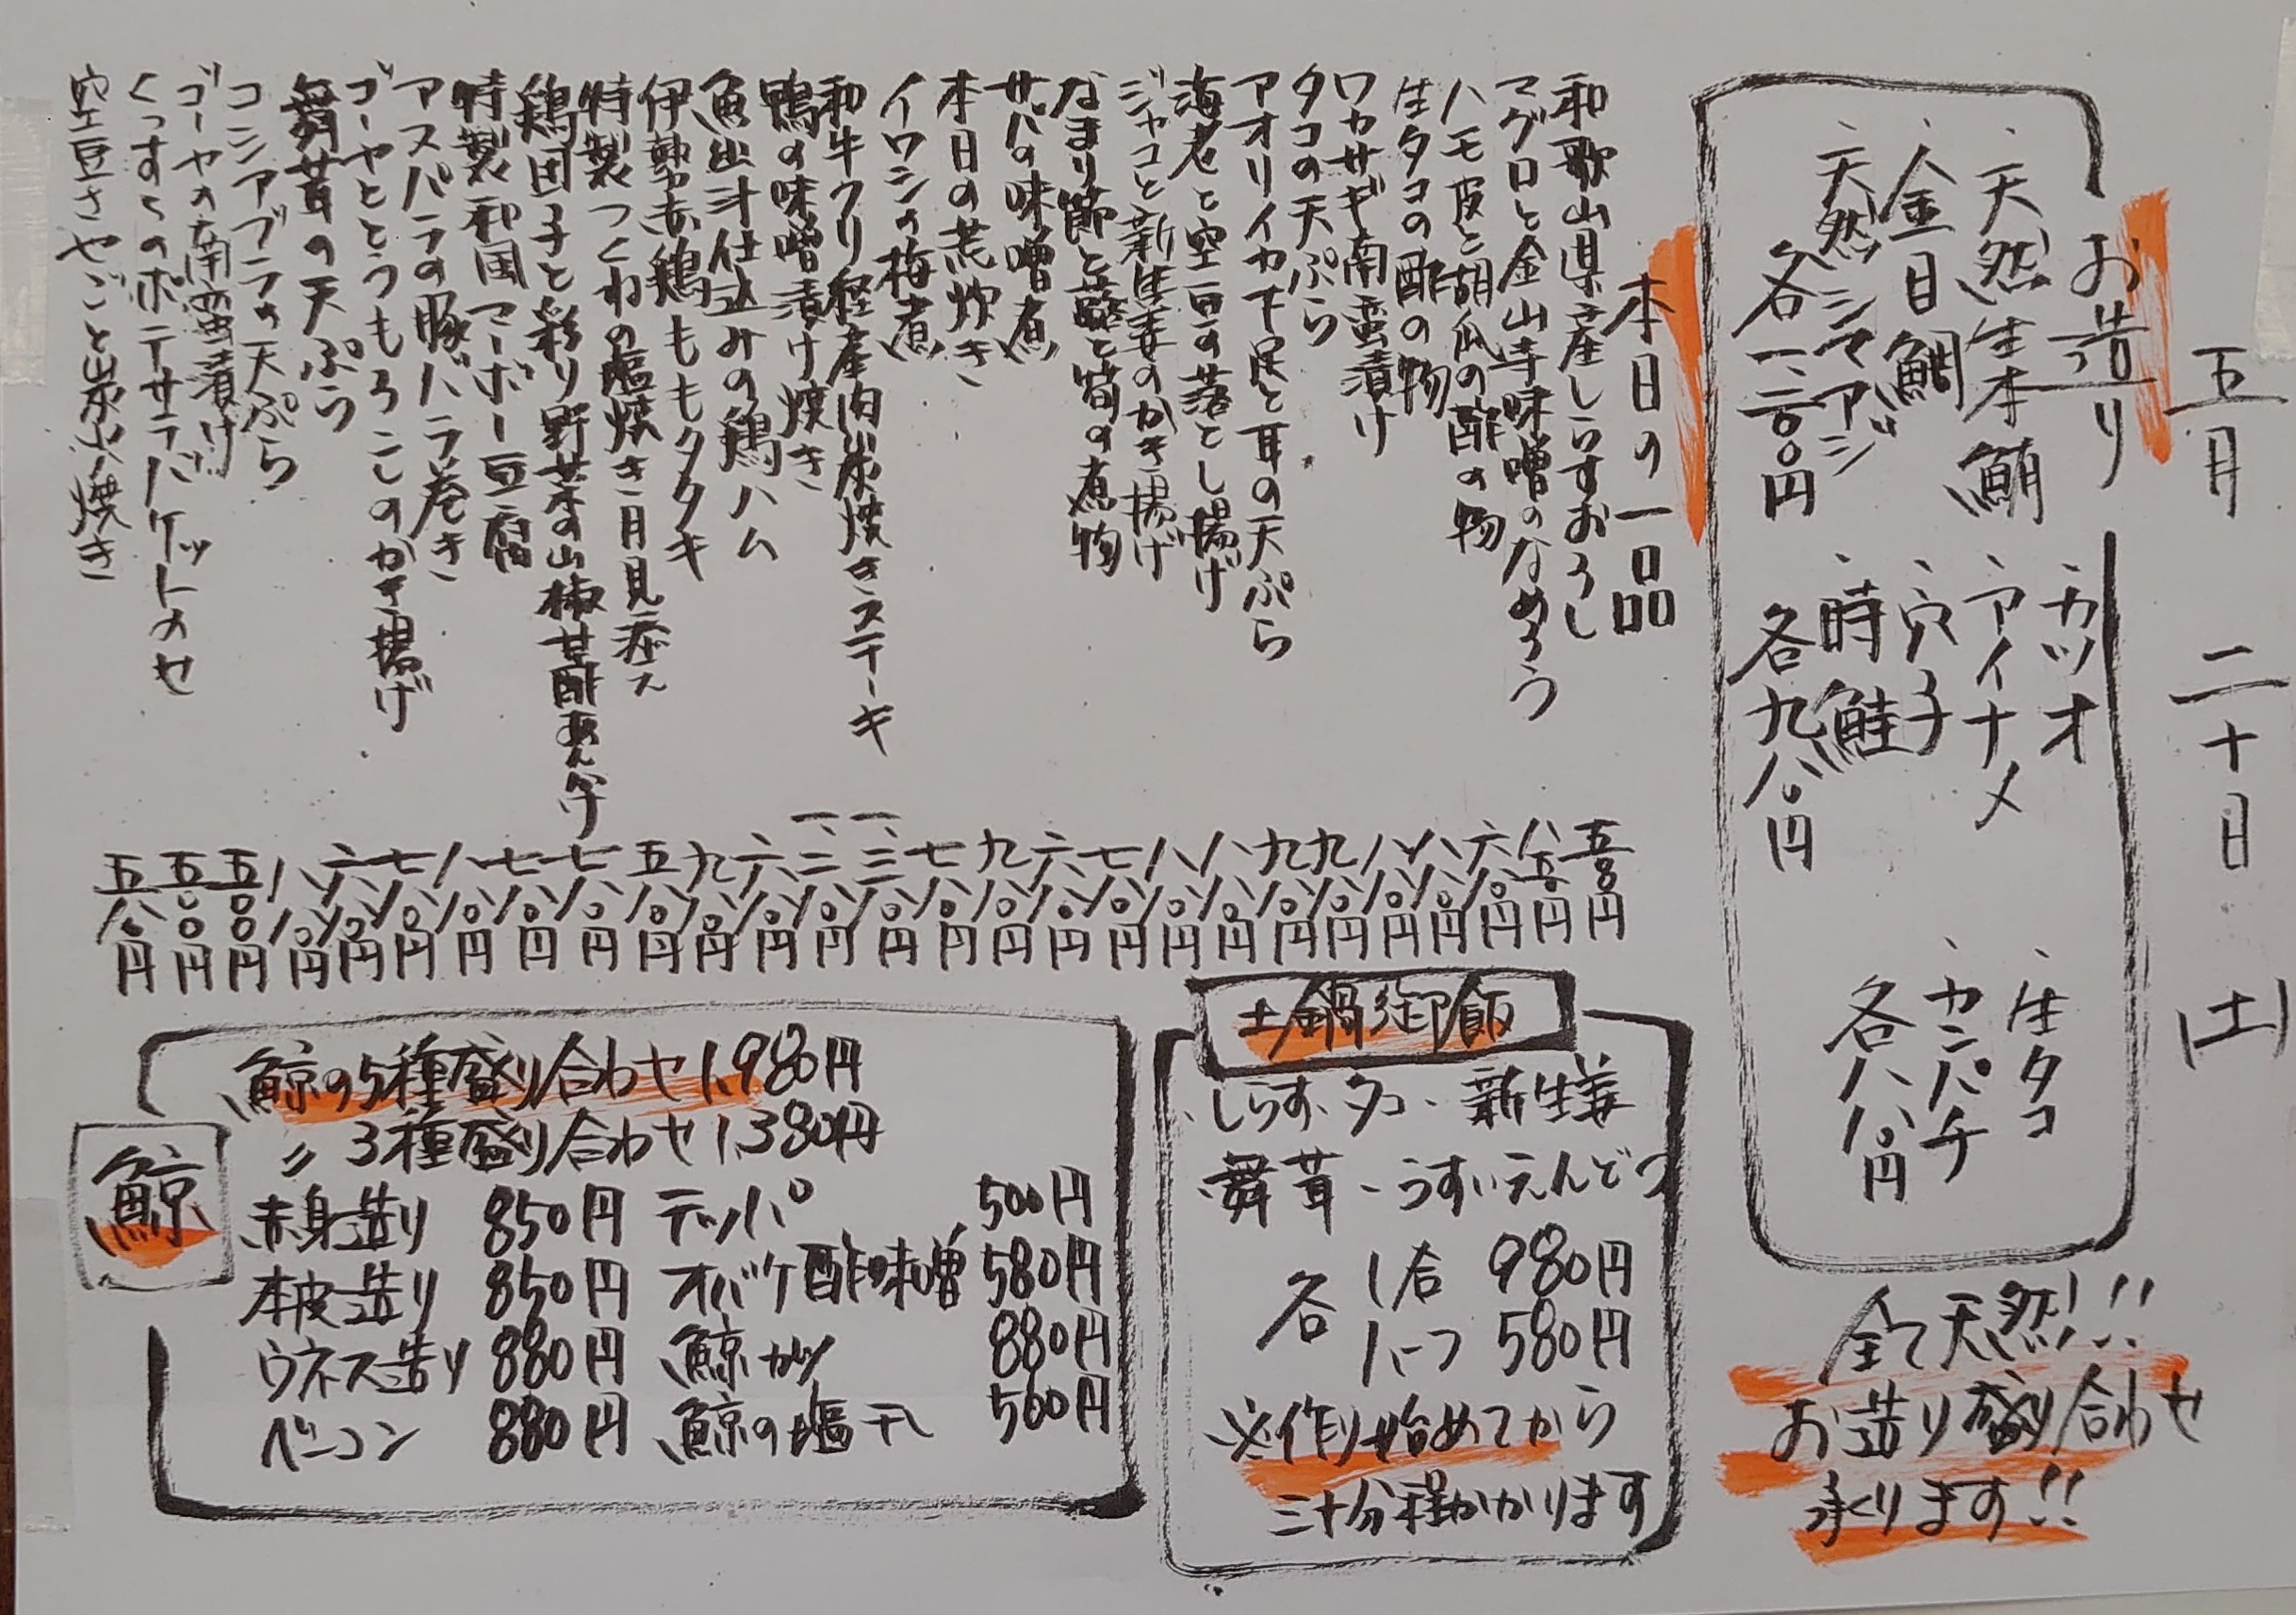 五月二十日(土)
お造り
・天然生本鮪
・金目鯛
・天然シマアジ
各一、二八〇円
・カツオ
・アイナメ
・穴子
・時鮭
各九八〇円
・生タコ
・カンパチ
各八八〇円
全て天然!!
お造り盛り合わせ
承ります!!
本日の一品
和歌山県産しらすおろし 五八〇円
マグロと金山寺味噌のなめろう 八五〇円
ハモ皮と胡瓜の酢の物 六八〇円
生タコの酢の物 八八〇円
ワカサギ南蛮漬け 八八〇円
タコの天ぷら 九八〇円
アオリイカ下足と耳の天ぷら 九八〇円
海老と空豆の落とし揚げ 八八〇円
ジャコと新生姜のかき揚げ 八八〇円
なまり節と蕗と筍の煮物 七八〇円
サバの味噌煮 六八〇円
本日の荒炊き 九八〇円
イワシの梅煮 七八〇円
和牛クリ経産肉炭焼きステーキ 一、三八〇円
鴨の味噌漬け焼き 一、二八〇円
魚出汁仕込みの鶏ハム 六八〇円
伊勢赤鶏ももタタキ 九八〇円
特製つくねの塩焼き月見添え 五八〇円
鶏団子と彩り野菜の山椒甘酢あんかけ 七八〇円
特製和風マーボー豆腐 七八〇円
アスパラの豚バラ巻き 八八〇円
ゴーヤととうもろこしのかき揚げ 七八〇円
舞茸の天ぷら 六八〇円
コシアブラの天ぷら 八八〇円
ゴーヤの南蛮漬け 五〇〇円
くっすくのポテサラバケットのせ 五〇〇円
空豆さやごと炭火焼き 五八〇円
土鍋御飯
・しらす・タコ・新生姜
・舞茸・うすいえんどう
各 1合 980円
1/2 580円
※作り始めてから
三十分程かかります
鯨
鯨の5種盛り合わせ 1,980円
〃 3種盛り合わせ 1,380円
赤身造り 850円 テッパ 500円
本皮造り 850円 オバケ酢味噌 580円
ウネス造り 880円 鯨カツ 880円
ベーコン 880円 鯨の塩干し 500円